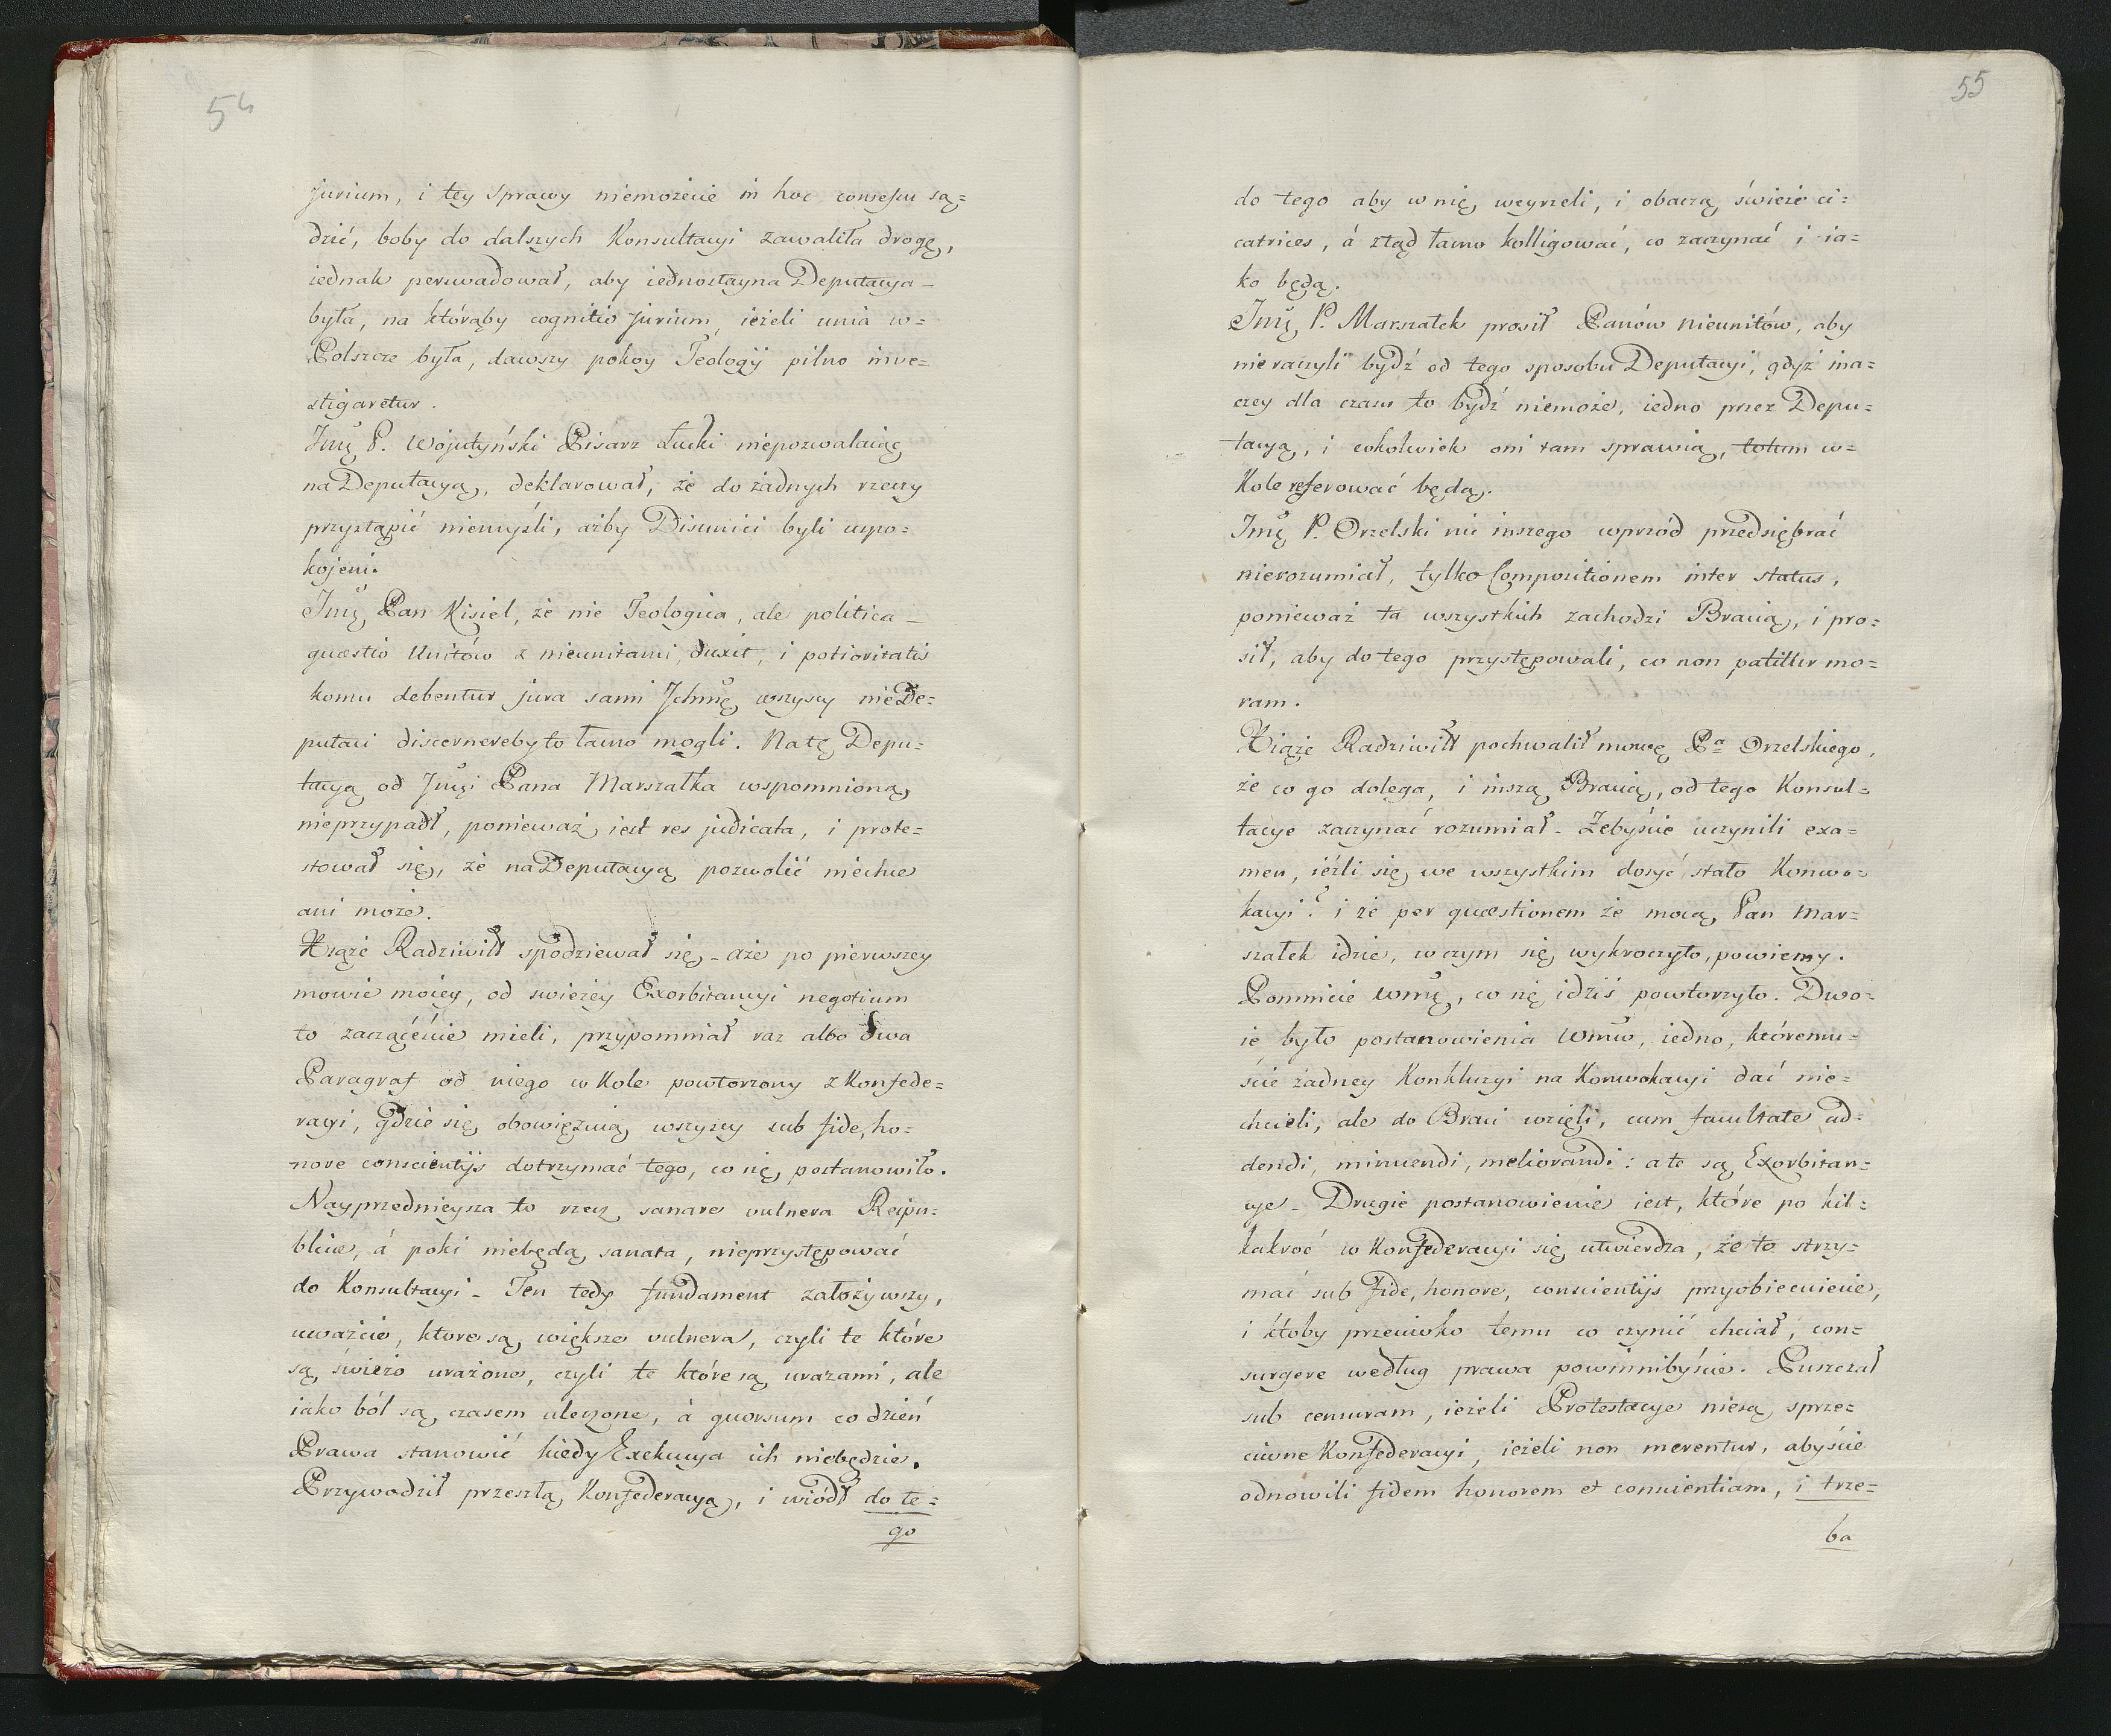 54
jurium, i tey sprawy niemożecie in hoc consessu są=
dzić, boby do dalszych Konsultacyi zawaliła drogę,
iednak perswadował, aby iednostayna Deputacya
była, na którąby cognitio jurium, ieżeli unia w=
Polszcze była, dawszy pokoy Teologij pilno inve=
stigaretur.
Jmć P. Wojutyński Pisarz Łucki niepozwalaiąc
na Deputacyą, deklarował, że do żadnych rzeczy
przystąpić niemyśli, ażby Disunici byli uspo=
kojeni.
Jmć Pan Kisiel, że nie Teologica, ale politica
quæstio Unitów z nieunitami, duxit, i potioritatis
komu debentur jura sami Jchmć wszyscy nie De=
putaci discernereby to łacno mogli. Na tę Depu=
tacyą od Jmci Pana Marszałka wspomnioną
nieprzypadł, ponieważ iest res judicata, i prote=
stował się, że na Deputacyą pozwolić niechce
ani może.
Xiąże Radziwiłł spodziewał się – aże po pierwszey
mowie moiey, od swieżey Exorbitancyi negotium
to zacząć mieli, przypomniał raz albo dwa
Paragraf od niego w Kole powtorzony z Konfede=
racyi, gdzie się obowięzuią wszyscy sub fide, ho=
nore conscientijs dotrzymać tego, co się postanowiło.
Nayprzednieysza to rzecz sanare vulnera Reipu=
blicæ, á poki niebędą sanata, nieprzystępować
do Konsultacyi – Ten tedy fundament założywszy,
uważcie, ktore są większe vulnera, czyli te które
są świeżo urażone, czyli te które są urazami, ale
iako ból są czasem uleczone, à quorsum co dzień
Prawa stanowić kiedy Exekucya ich niebędzie.
Przywodził przeszłą Konfederacyą, i wiódł do te=
go
55
do tego aby w nię weyrzeli, i obaczą świeże ci=
catrices, á ztąd łacno kolligować, co zaczynać i ia=
ko będą.
Jmć P. Marszałek prosił Panów nieunitów, aby
nie raczyli bydź od tego sposobu Deputacyi, gdyż ina=
czey dla czasu to bydź niemoże, iedno przez Depu=
tacyą, i cokolwiek oni tam sprawią, totum w=
Kole referować będą.
Jmć P. Orzelski nic inszego wprzód przedsiębrać
nierozumiał, tylko Compositionem inter status,
ponieważ ta wszystkich zachodzi Bracią, i pro=
sił, aby do tego przystępowali, co non patitur mo=
ram.
Xiąże Radziwiłł pochwalił mowę Pa Orzelskiego,
że co go dolega, i inszą Bracią, od tego Konsul=
tacye zaczynać rozumiał – Żebyście uczynili exa=
men, ieźli się we wszystkim dosyć stało Konwo=
kacyi? i że per quæstionem że mocą Pan Mar=
szałek idzie, w czym się wykroczyło, powiemy.
Pomnicie WMć, co się i dziś powtorzyło. Dwo=
ie było postanowienia WMw, iedno, któremu=
ście żadney Konkluzyi na Konwokacyi dać nie=
chcieli, ale do Braci wzięli, cum facultate ad=
dendi, minuendi, meliorandi: a te są Exorbitan=
cye – Drugie postanowienie iest, które po kil=
kakroć w Konfederacyi się utwierdza, że to strzy=
mać sub fide, honore, conscientijs przyobiecuiecie,
i ktoby przeciwko temu co czynić chciał, con=
surgere według prawa powinnibyście. Puszczał
sub censuram, ieżeli Protestacye niesą sprze=
ciwne Konfederacyi, ieżeli non merentur, abyście
odnowili fidem honorem et conscientiam, i trze=
ba